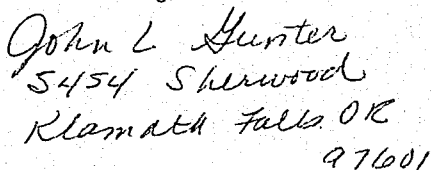 John L Gunter
5454 Sherwood
Klamath Falls OR
97601